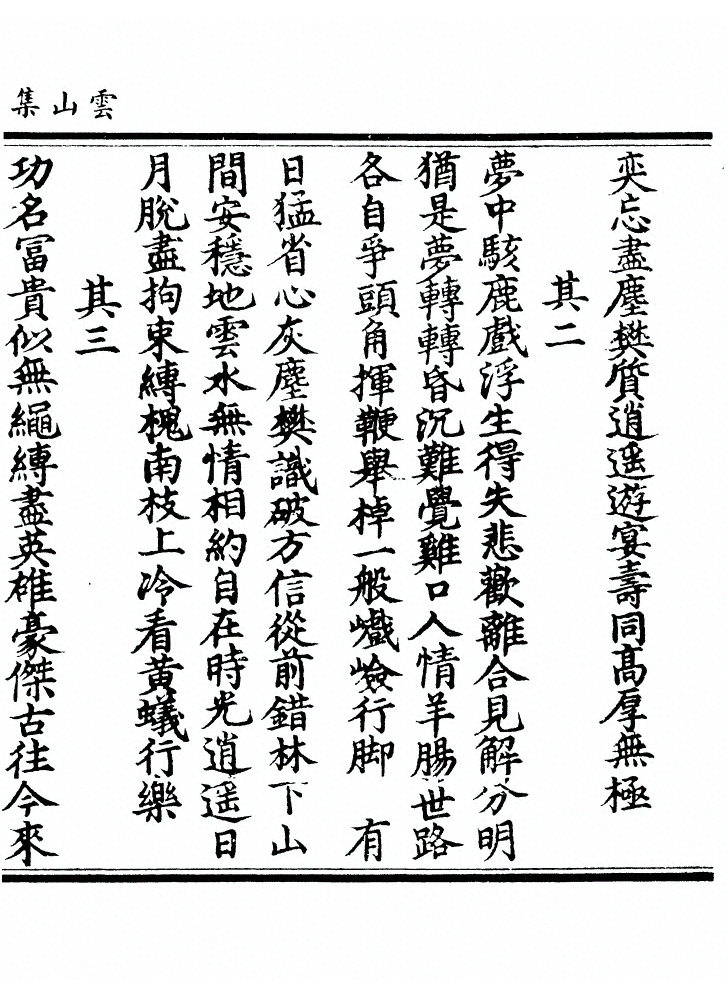 集山雲
奕忘盡塵樊質逍遥遊宴壽同髙厚無極
其二
夢中駭鹿戲浮生得失悲歡離合見解分明
猶是夢轉轉昏沉難覺雞口人情羊腸世路
各自爭頭角揮鞭舉棹一般巇嶮行脚　有
日猛省心灰塵樊識破方信從前錯林下山
間安穩地雲水無情相約自在時光逍遥日
月脫盡拘束縳槐南枝上冷看黄蟻行樂
其三
功名富貴似無繩縳盡英雄豪傑古往今來